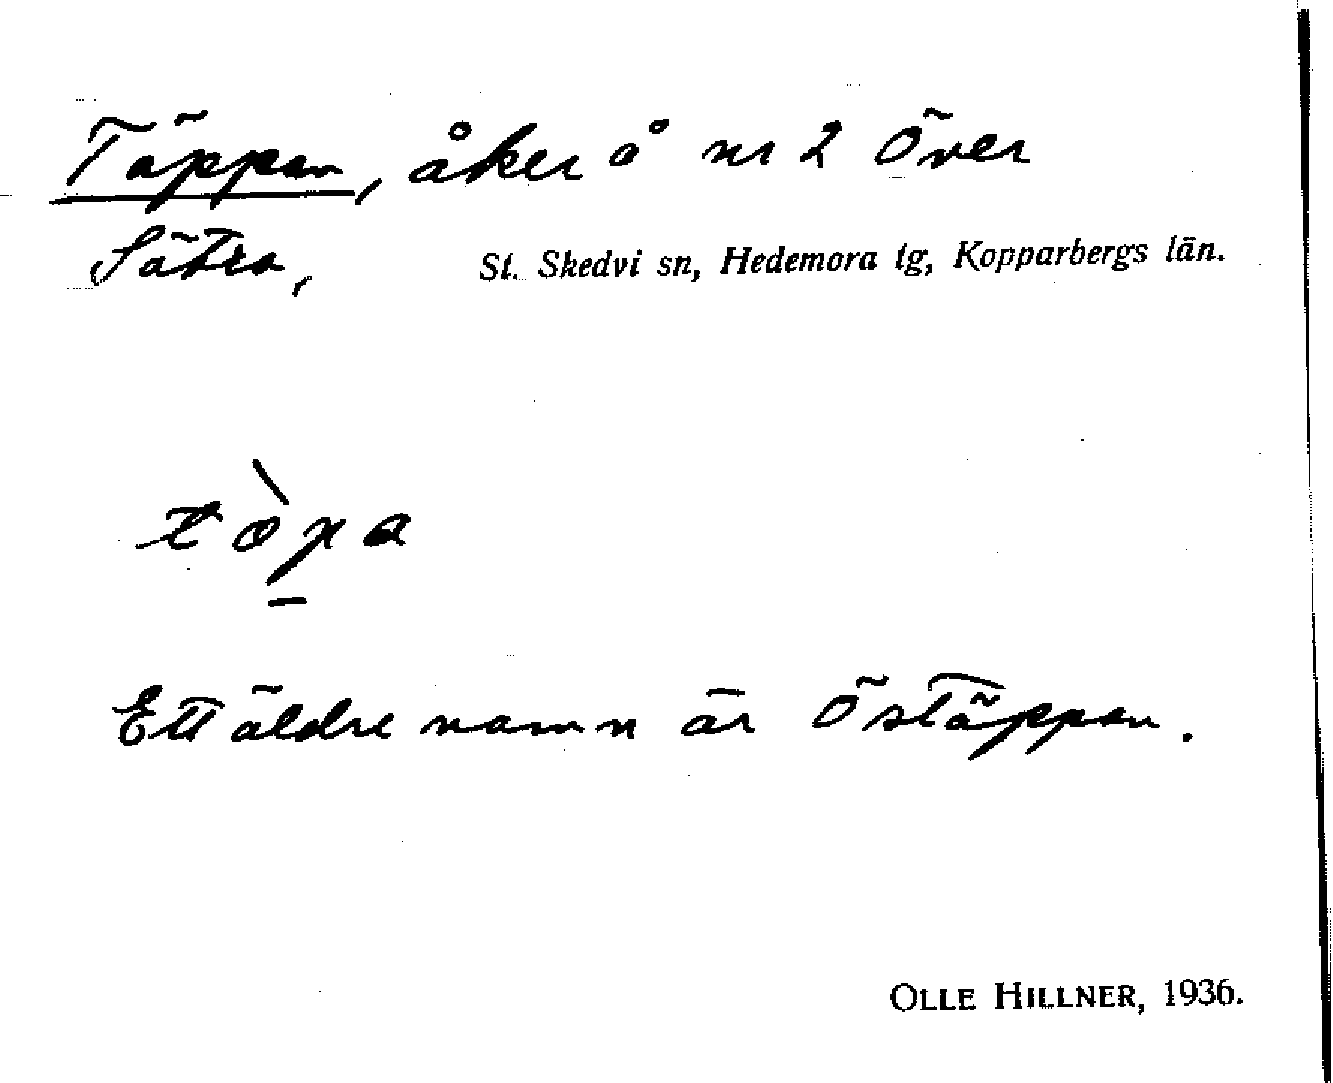 Täppan, åker å nr 2 Över
Sätra, St. Skedvi sn, Hedemora tg, Kopparbergs län.
Ett äldre namn är Östäppan.
OLLE HILLNER, 1936.